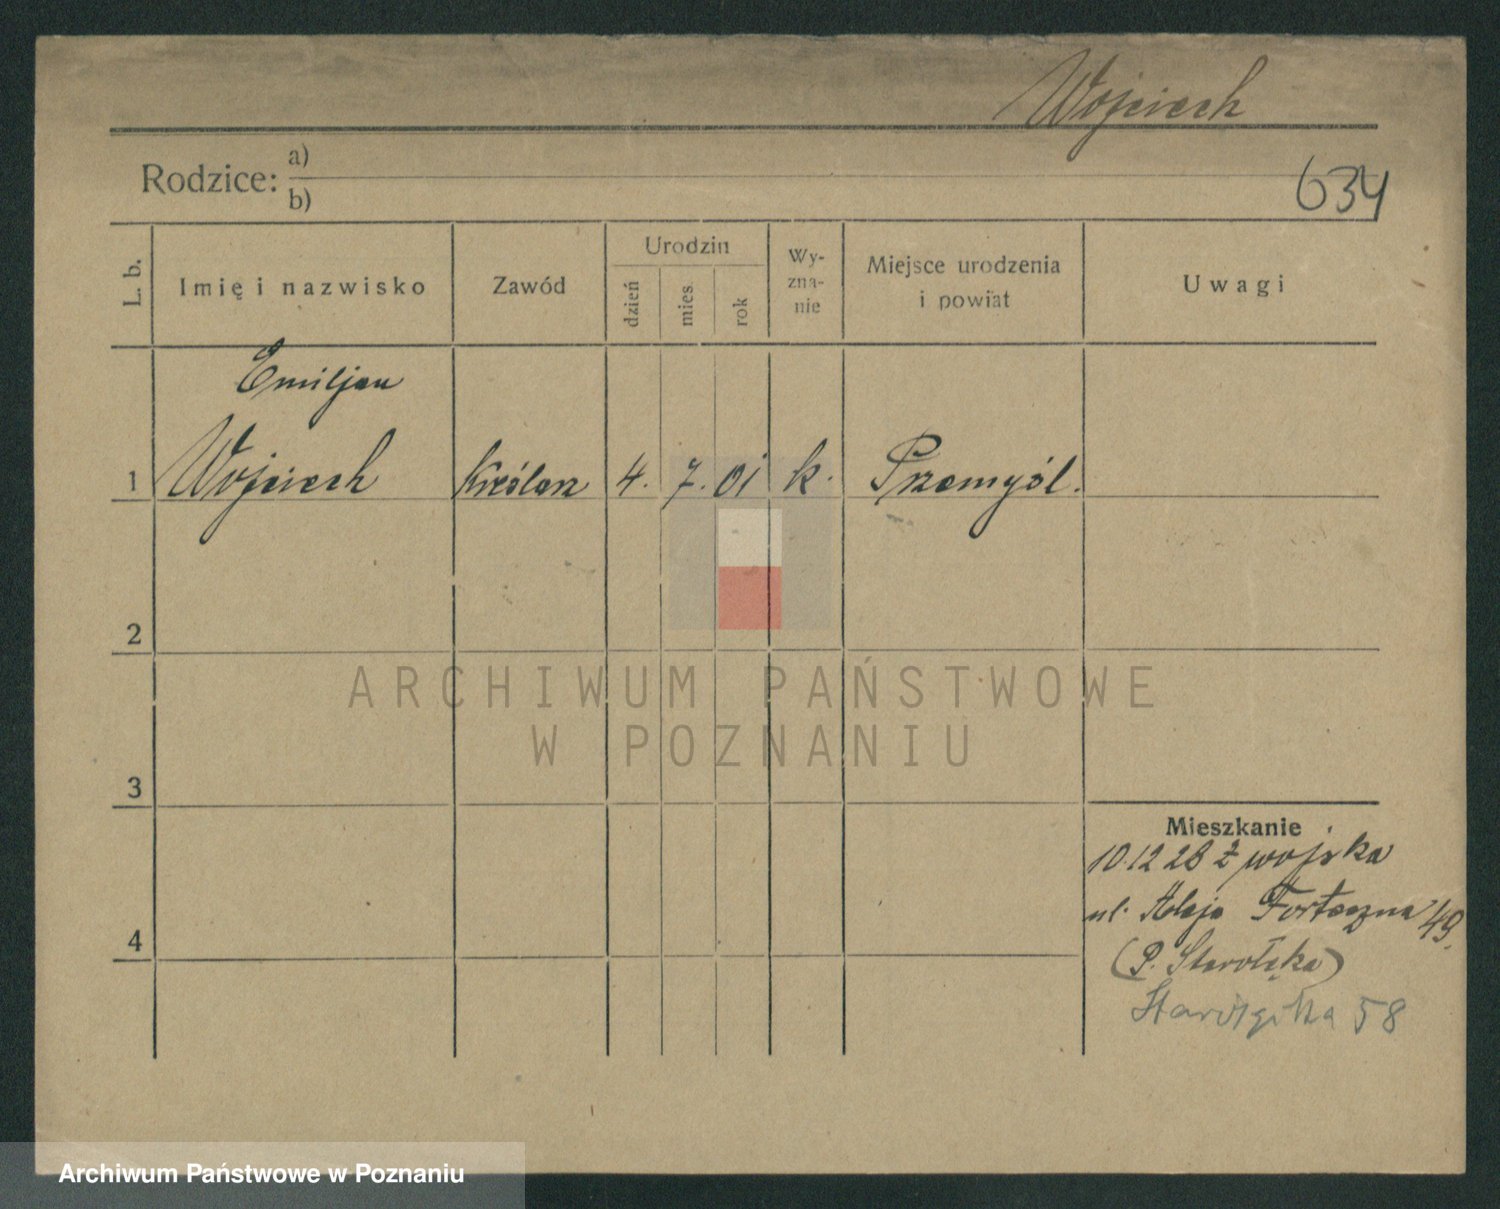 Wojciech
Rodzice: a)
b)
634
L. b. Imię i nazwisko Zawód Urodzin dzień mies. rok Wy-zna-nie Miejsce urodzenia i powiat Uwagi
Emiljan
1 Wojciech Kreślarz 4. 7. 01 k. Przemyśl.
2
ARCHIWUM PAŃSTWOWE
W POZNANIU
3
Mieszkanie
10.12 28 z wojska
ul. Aleja Forteczna 49.
4
(P. Starołęka)
58
Archiwum Państwowe w Poznaniu